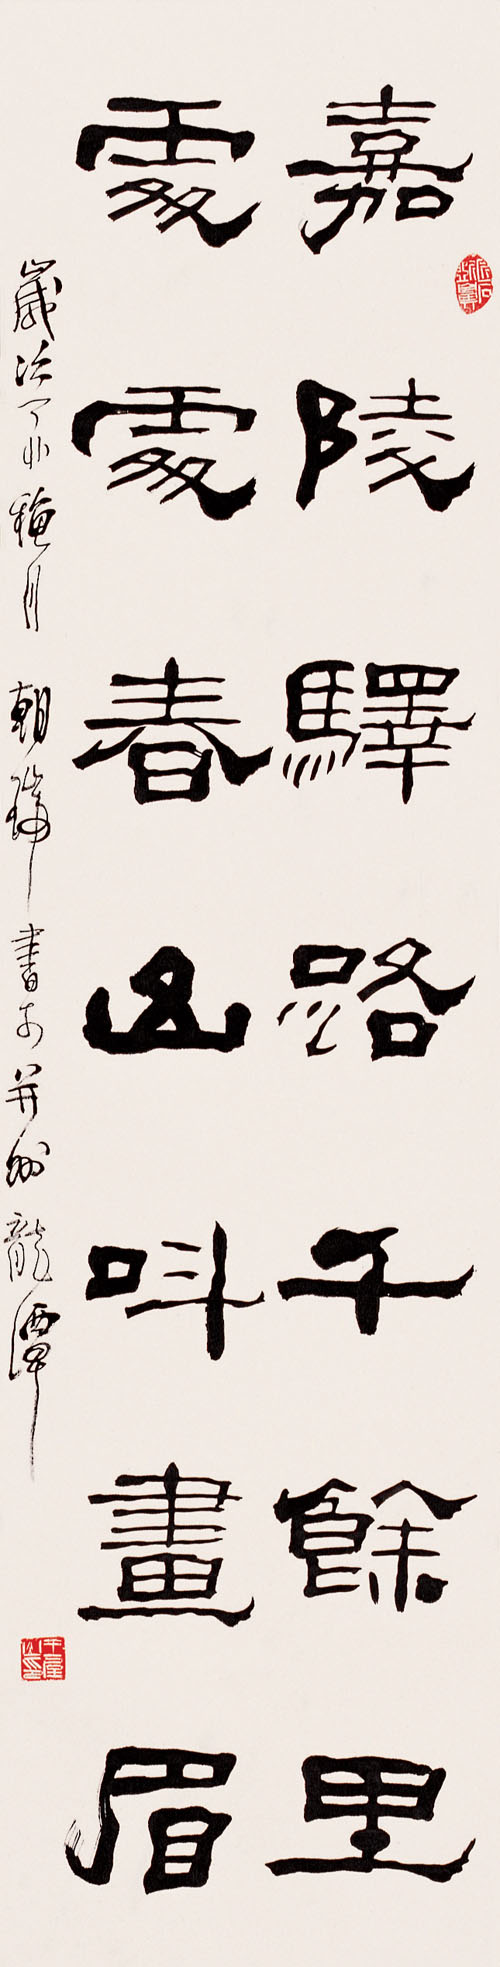 嘉陵驛路千餘里
處處春山呌畫眉
歲次丁卯穐月 朝瑞書於并州龍潭